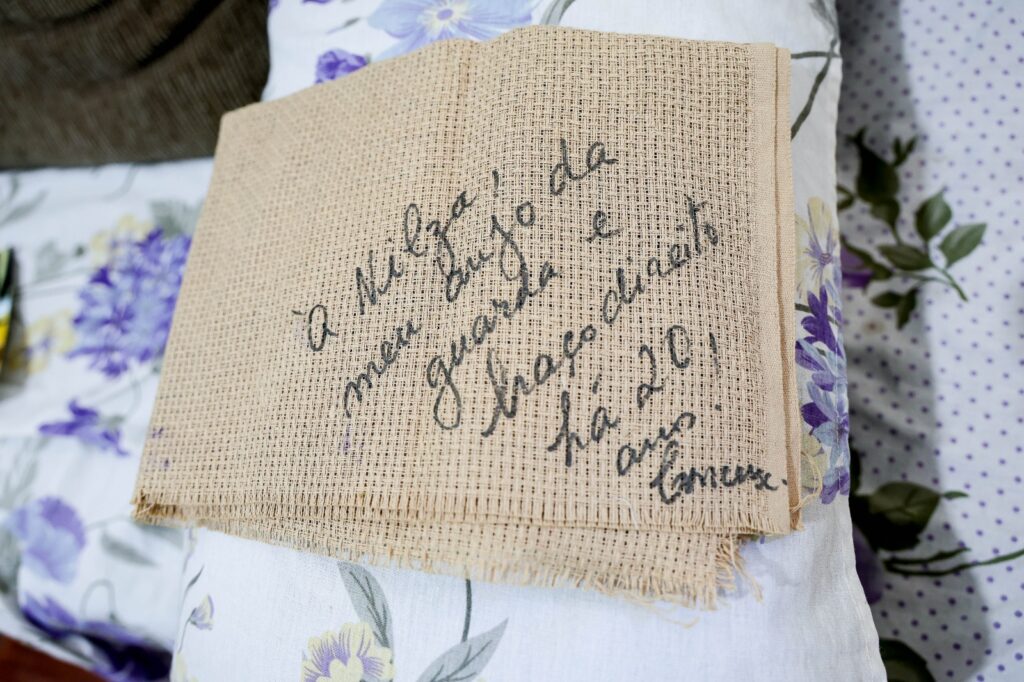 À Nilza!
meu anjo da
guarda e
braço direito
há 20!
anos.